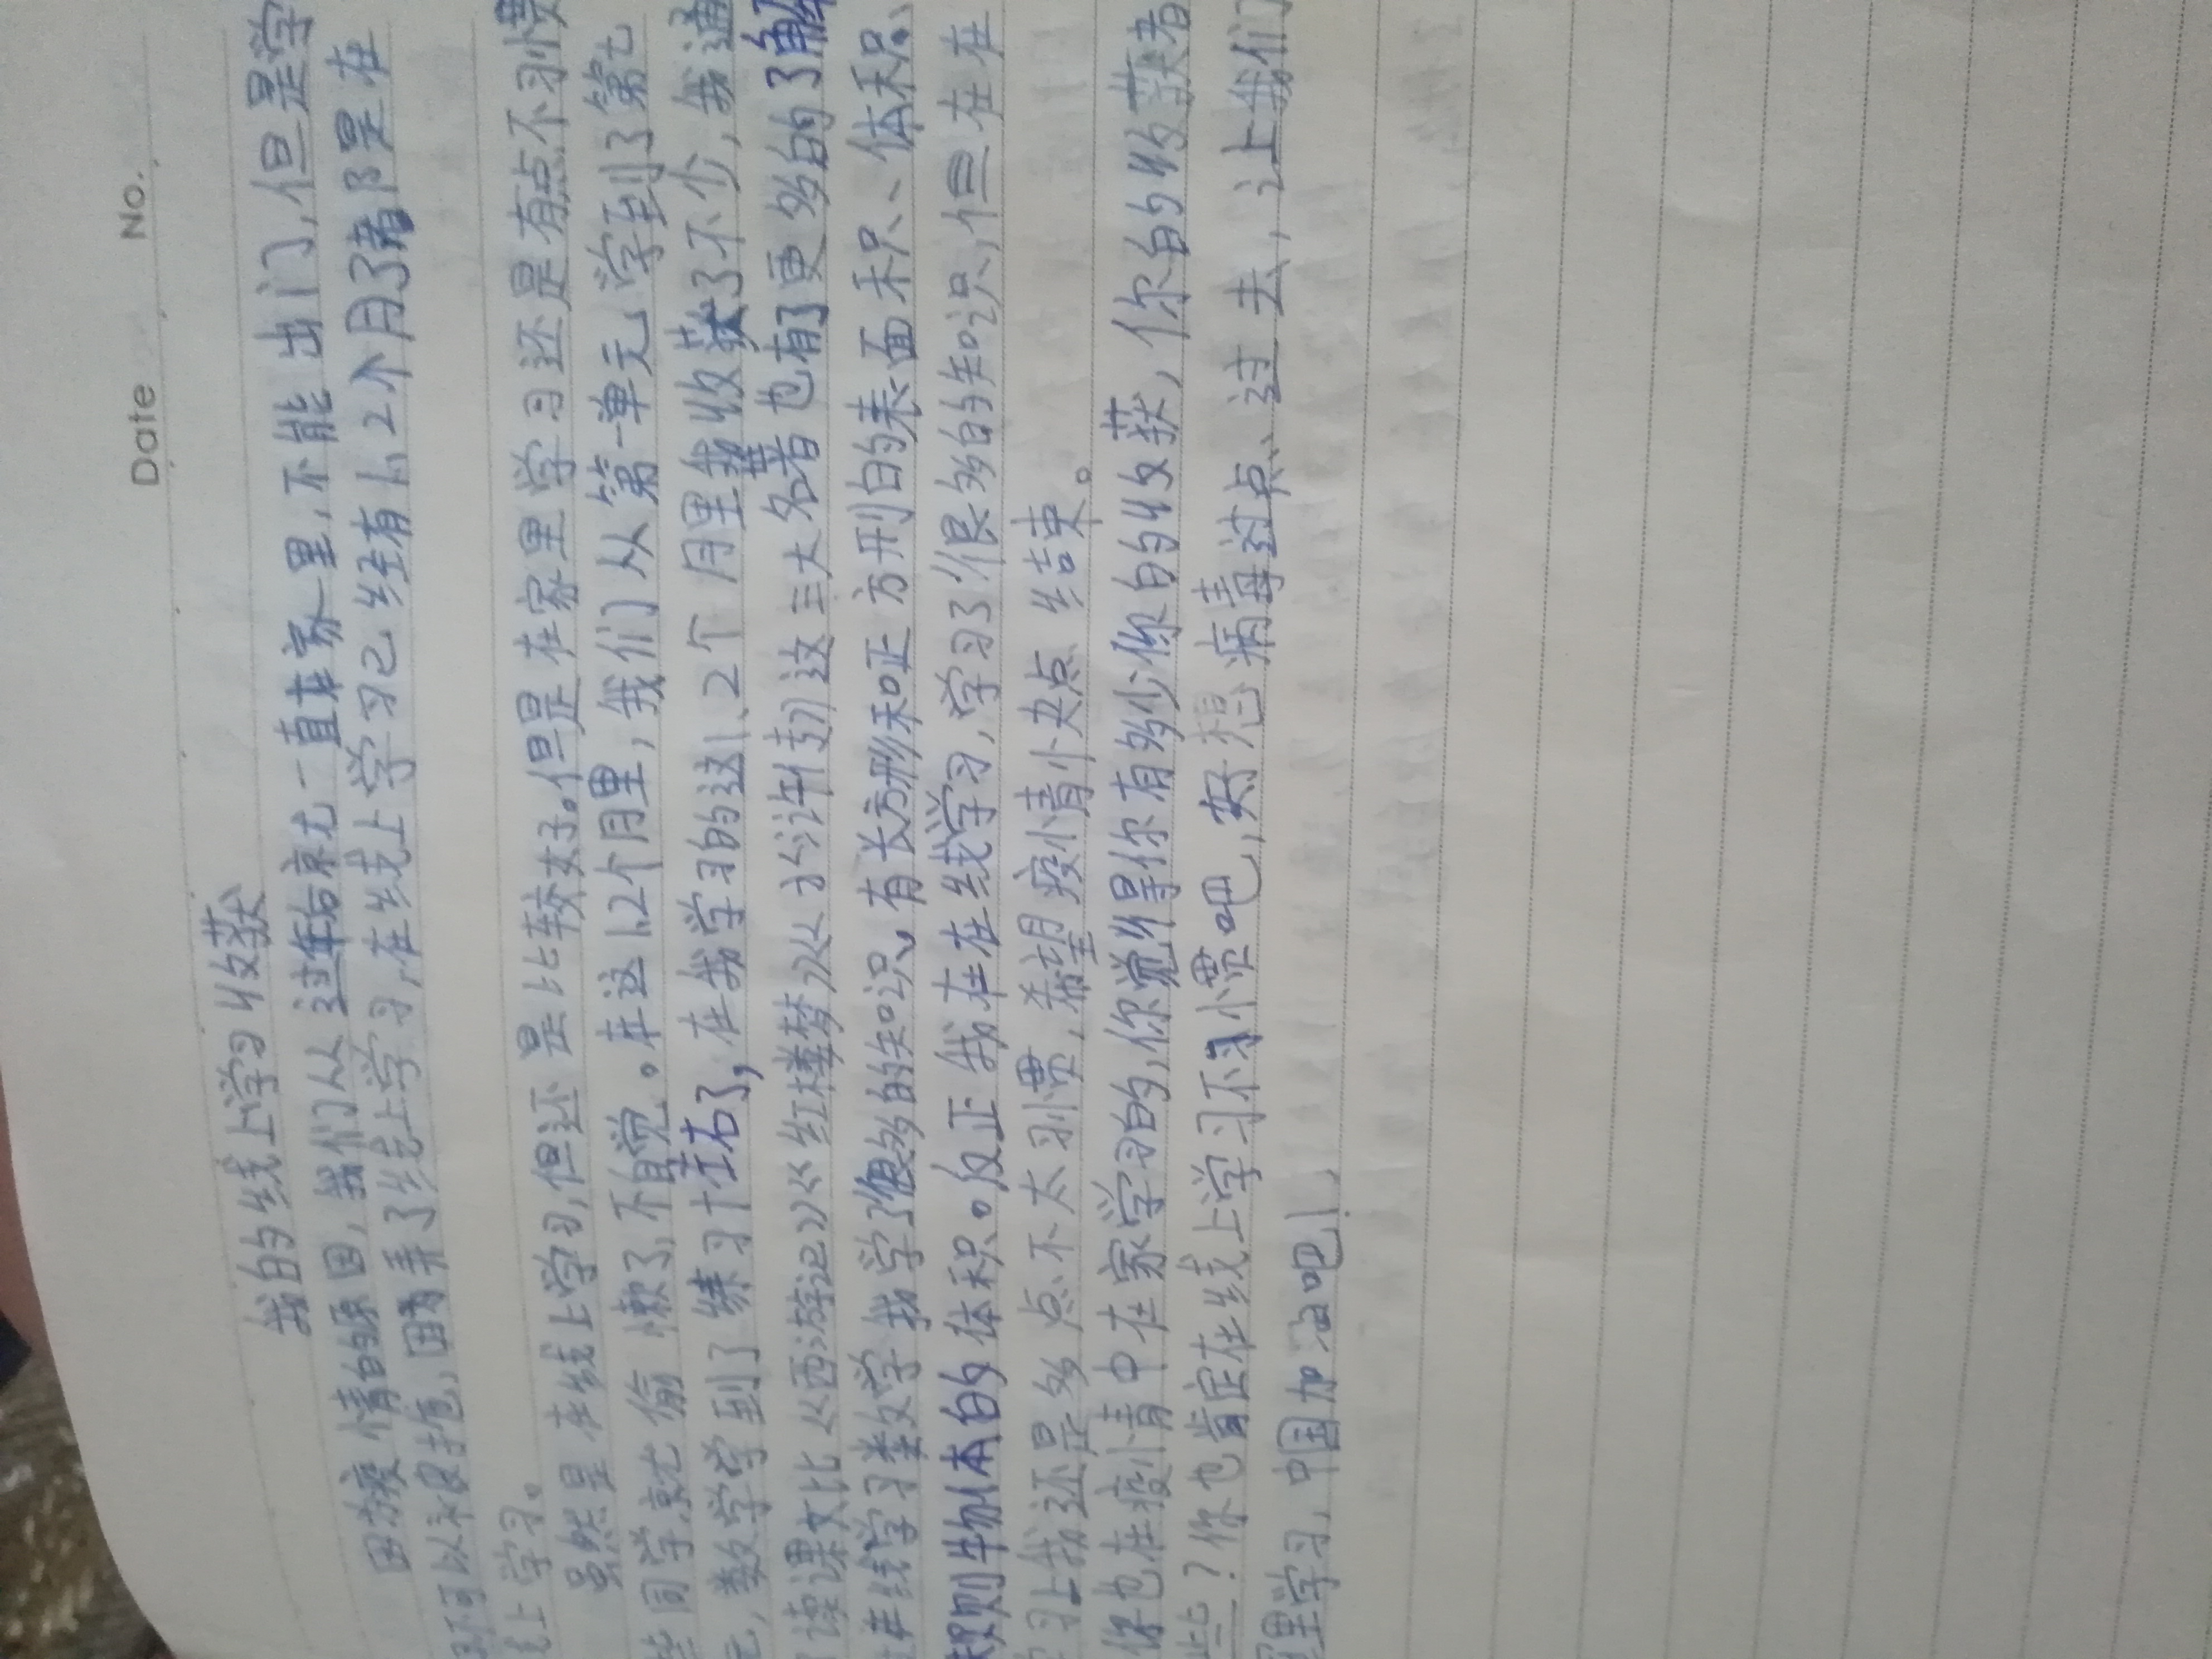 Date No.
我的线上学习收获
因为疫情的原因,我们从过年后就一直在家里,不能出门,但是学
习可以和没持危,因为弄了线上学习,在线上学习已经有1、2个月了都是在
线上学习。
虽然是在线上学习,但还是比较好。但是在家里学习还是有点不习惯
些同学就偷懒了,不自觉。在这1.2个月里,我们从第一单元学到了第七
元,数学学到了练习十左右了,在我学习的这1、2个月里我收获了不少,我通
了读课文比《西游记》《红楼梦》《水浒传》这三大名著也有了更多的了解
在线学习类数学我学了很多的知识,有长方形和正方形的表面积、体积、
规则物体的体积。反正我在在线学习,学习了很多的知识,但在在
学习上我还是多点不太习惯,希望疫情小快点结束。
你也在疫情中在家学习的,你觉得你有多少你的收获,你的收获者
些?你也肯定在线上学习不习惯吧,好想病毒过点、过去,让我们
里学习,中国加油吧!